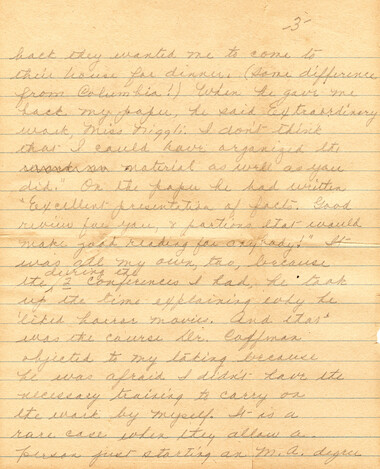 -3-
back they wanted me to come to
their house for dinner. (Some difference
from Columbia!) When he gave me
back my paper, he said "Extraordinary
work, Miss Niggli. I don't think
that I could have organized the
material as well as you
did." On the paper he had written
"Excellent presentation of facts. Good
review for you, & portions that would
make good reading for anybody!" It
was all my own, too, because
during the
the 2 conferences I had, he took
up the time explaining why he
liked horror movies. And that
was the course Dr. Coffman
objected to my taking because
he was afraid I didn't have the
necessary training to carry on
the work by myself. It is a
rare case when they allow a
person just starting an M.A. degree